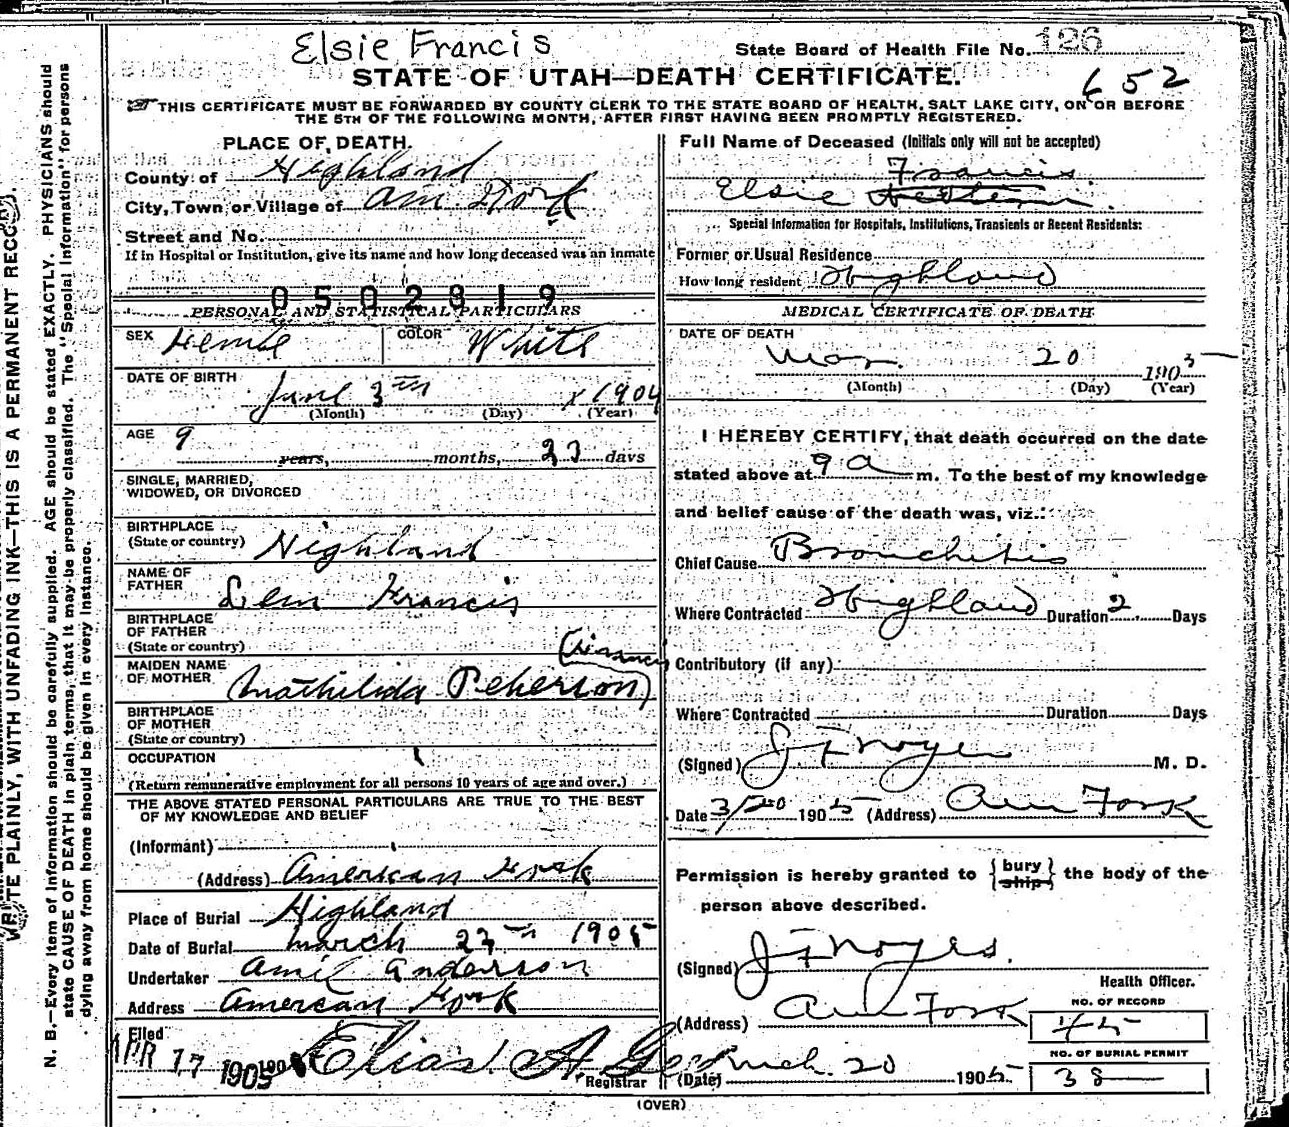 Elsie Francis
State Board of Health File No. 126
STATE OF UTAH—DEATH CERTIFICATE.
652
THIS CERTIFICATE MUST BE FORWARDED BY COUNTY CLERK TO THE STATE BOARD OF HEALTH, SALT LAKE CITY, ON OR BEFORE
THE 5TH OF THE FOLLOWING MONTH, AFTER FIRST HAVING BEEN PROMPTLY REGISTERED.
WRITE PLAINLY, WITH UNFADING INK—THIS IS A PERMANENT RECORD.
N. B.—Every item of information should be carefully supplied. AGE should be stated EXACTLY. PHYSICIANS should
state CAUSE OF DEATH in plain terms, that it may be properly classified. The "Special Information" for persons
dying away from home should be given in every instance.
PLACE OF DEATH.
County of Highland
City, Town, or Village of Am Fork
Street and No.
If in Hospital or Institution, give its name and how long deceased was an inmate
0502819
PERSONAL AND STATISTICAL PARTICULARS
SEX Female COLOR White
DATE OF BIRTH
June 3 1904
(Month) (Day) (Year)
AGE 9
years, months, 23 days
SINGLE, MARRIED,
WIDOWED, OR DIVORCED
BIRTHPLACE
(State or country) Highland
NAME OF
FATHER Lem Francis
BIRTHPLACE
OF FATHER
(State or country)
(Francis
MAIDEN NAME
OF MOTHER Mathilida Peherson)
BIRTHPLACE
OF MOTHER
(State or country)
OCCUPATION
(Return remunerative employment for all persons 10 years of age and over.)
THE ABOVE STATED PERSONAL PARTICULARS ARE TRUE TO THE BEST
OF MY KNOWLEDGE AND BELIEF
(Informant)
(Address) American Fork
Place of Burial Highland
Date of Burial march 22 1905
Undertaker Amil Anderson
Address American Fork
Filed
APR 17 1905 Elias A.
Registrar
Full Name of Deceased (Initials only will not be accepted)
Francis
Elsie
Special Information for Hospitals, Institutions, Transients or Recent Residents:
Former or Usual Residence
How long resident Highland
MEDICAL CERTIFICATE OF DEATH
DATE OF DEATH
Mar. 20 1905
(Month) (Day) (Year)
I HEREBY CERTIFY, that death occurred on the date
stated above at 9 a m. To the best of my knowledge
and belief cause of the death was, viz.:
Chief Cause Bronchitis
Where Contracted Highland Duration 2 Days
Contributory (if any)
Where Contracted Duration Days
(Signed) J F Noyes M. D.
Date 3/20 1905 (Address) Am Fork
Permission is hereby granted to {bury ship} the body of the
person above described.
(Signed) J F Noyes.
Health Officer.
(Address) Am Fork
NO. OF RECORD
45
NO. OF BURIAL PERMIT
38
(Date) Mch. 20 1905
(OVER)